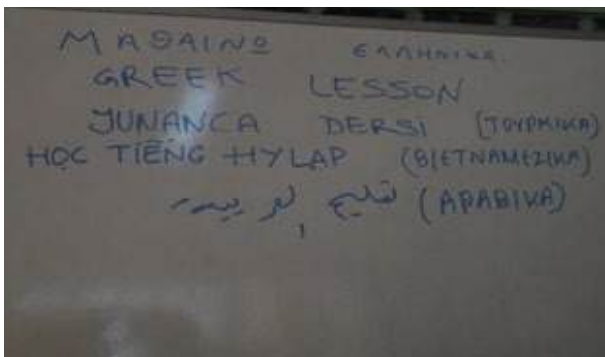 ΜΑΘΑΙΝΩ ΕΛΛΗΝΙΚΑ
GREEK LESSON
YUNANCA DERSI (ΤΟΥΡΚΙΚΑ)
HỌC TIẾNG HYLAP (ΒΙΕΤΝΑΜΕΖΙΚΑ)
(ΑΡΑΒΙΚΑ)